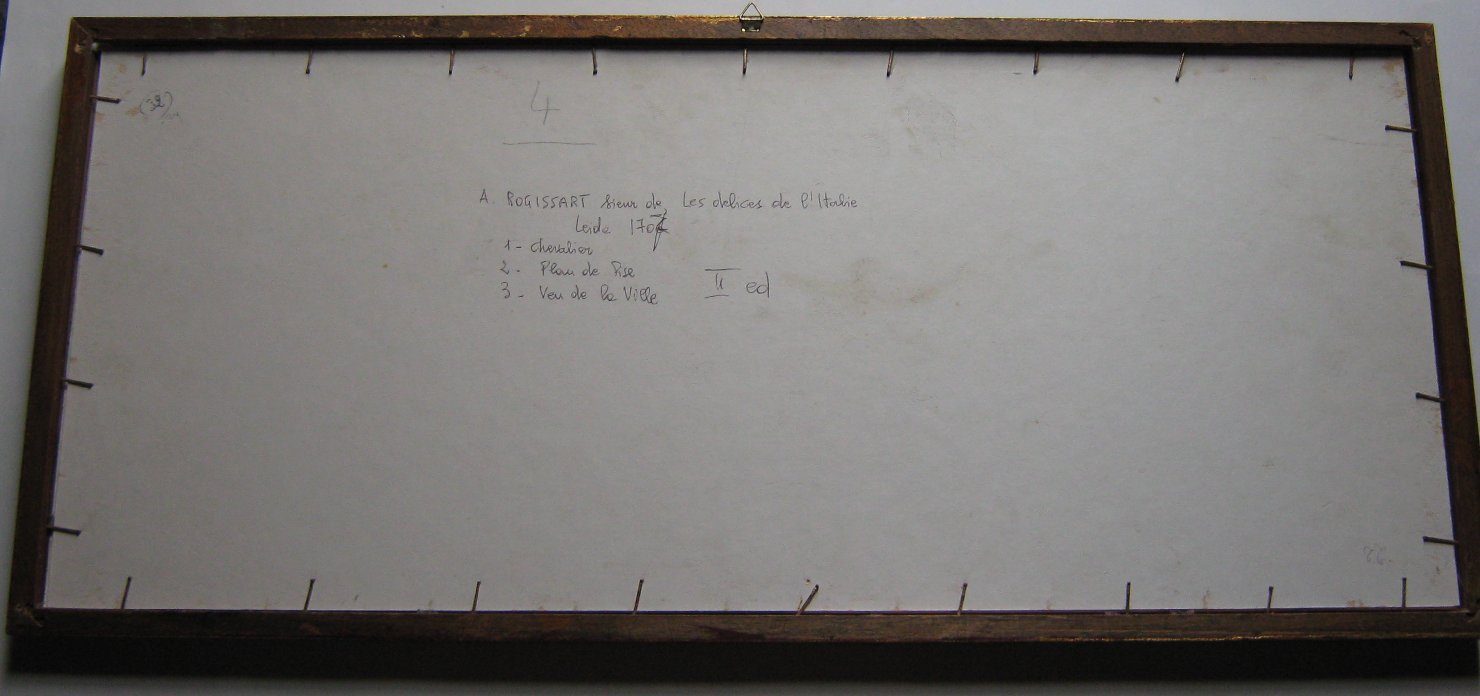 (32)
4
A. ROGISSART sieur de Les delices de l'Italie
Leida 170
1 - Chevalier
2 - Plan de Pise
3 - Veu de la Ville II ed